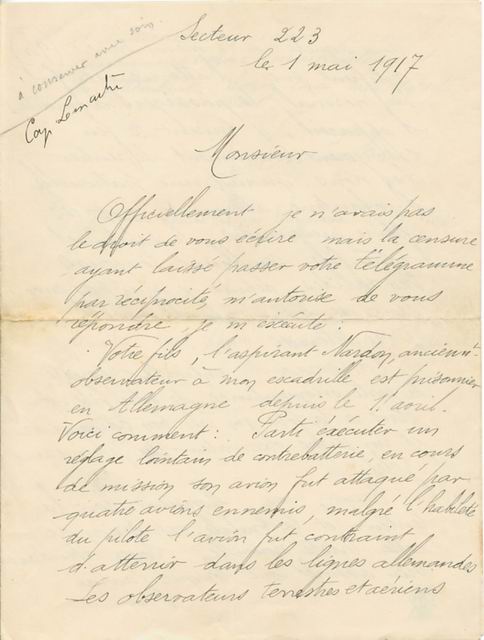 à conserver avec soin.
Cap Lemaitre
Secteur 223
le 1 mai 1917
Monsieur
Officiellement je n'avais pas
le droit de vous écrire mais la censure
ayant laissé passer votre télégramme
par réciprocité, m'autorise de vous
répondre, je m'exécute :
Votre fils, l'aspirant Nardon, ancien
observateur à mon escadrille est prisonnier
en Allemagne depuis le 1 avril.
Voici comment : Parti éxécuter un
réglage lointain de contrebatterie, en cours
de mission son avion fut attaqué par
quatre avions ennemis, malgré l'habileté
du pilote l'avion fut contraint
d'atterrir dans les lignes allemandes
Les observateurs terrestres et aériens